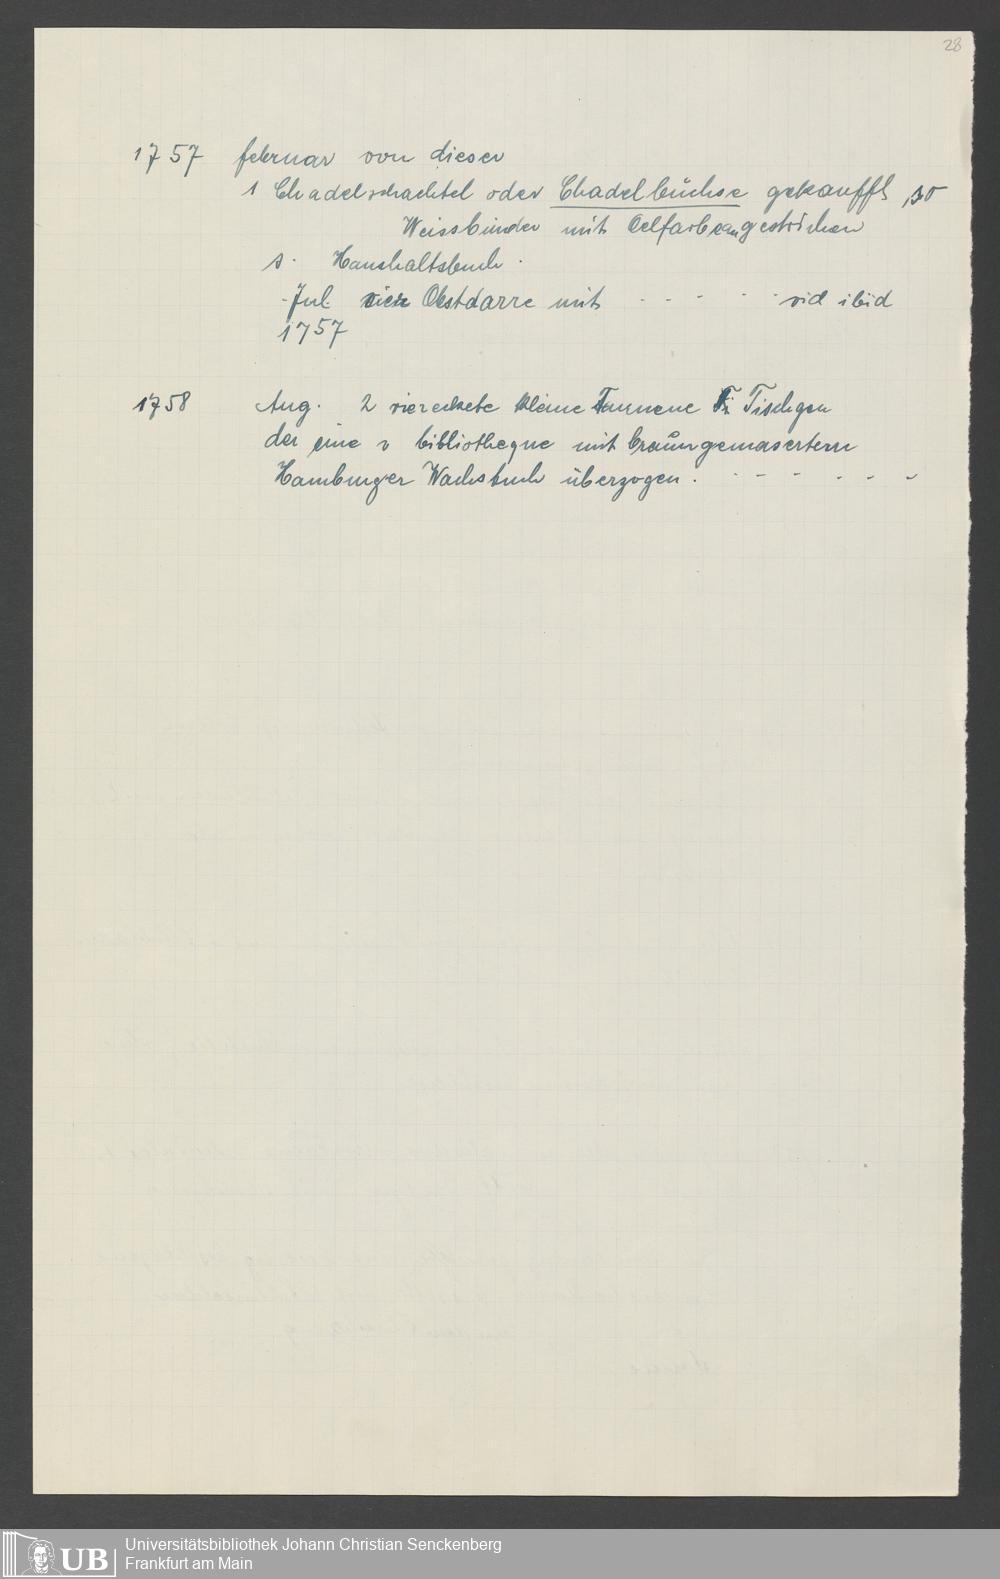 28
1757 februar von dieser
1 Chadelschachtel oder Chadelbüchse gekaufft ,30
Weissbinder mit Oelfarbe angestrichen
s. Haushaltsbuch.
Jul. Obstdarre mit - - - - - vid ibid
1757
1758 Aug. 2 viereckete kleine Tannene Tischgen
der eine v bibliotheque mit braungemasertem
Hamburger Wachstuch überzogen. - - - - - -
UB
Universitätsbibliothek Johann Christian Senckenberg
Frankfurt am Main